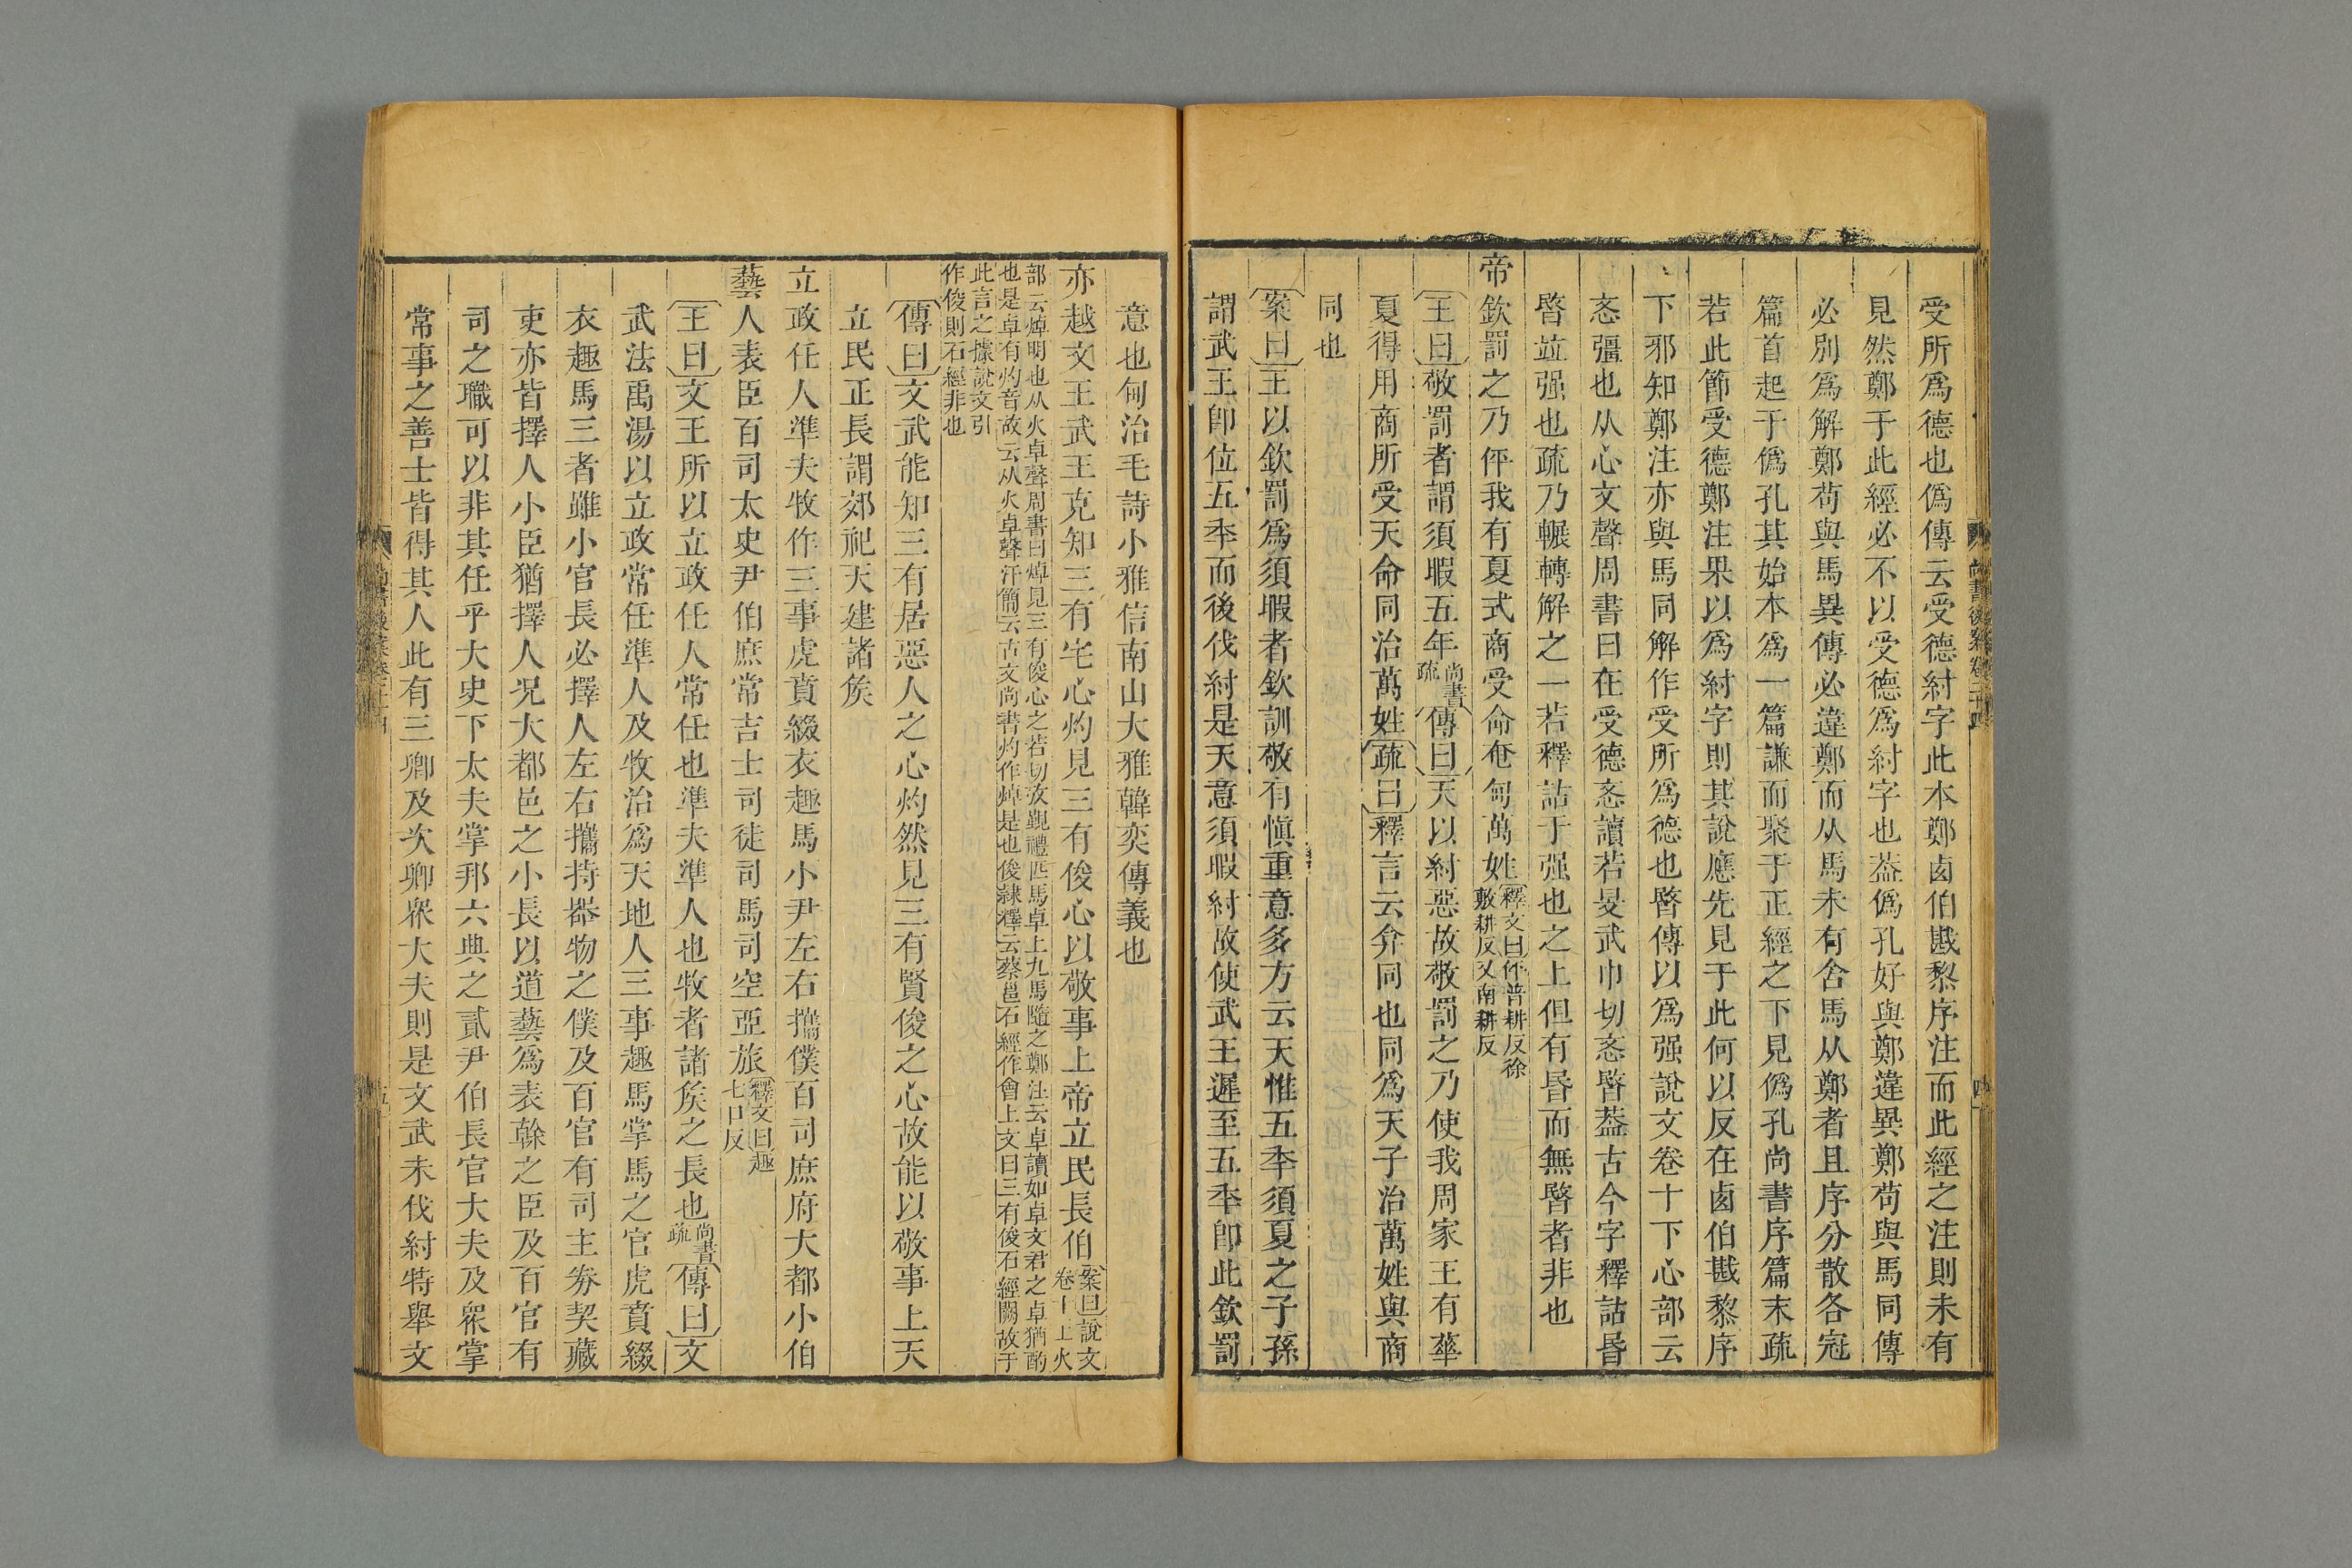 受所爲德也僞傳云受德紂字此本鄭卤伯戡黎序注而此經之注則未有
見然鄭于此經必不以受德爲紂字也葢僞孔好與鄭違異鄭苟與馬同傳
必別爲解鄭苟與馬異傳必違鄭而从馬未有舍馬从鄭者且序分散各冠
篇首起于僞孔其始本爲一篇謙而聚于正經之下見僞孔尚書序篇末疏
若此節受德鄭注果以爲紂字則其說應先見于此何以反在卤伯戡黎序
下邪知鄭注亦與馬同解作受所爲德也暋傳以爲强說文卷十下心部云
忞彊也从心文聲周書曰在受德忞讀若旻武巾切忞暋葢古今字釋詁昬
暋竝强也疏乃輾轉解之一若釋詁于强也之上但有昬而無暋者非也
帝欽罰之乃伻我有夏式商受命奄甸萬姓釋文曰伻普耕反徐
敷耕反又甫耕反
王曰敬罰者謂須暇五年尚書
疏傳曰天以紂惡故敬罰之乃使我周家王有華
夏得用商所受天命同治萬姓疏曰釋言云弇同也同爲天子治萬姓與商
同也
案曰王以欽罰爲須暇者欽訓敬有愼重意多方云天惟五秊須夏之子孫
謂武王卽位五秊而後伐紂是天意須暇紂故使武王遲至五秊卽此欽罰
尚書後案卷二十四
四
意也甸治毛詩小雅信南山大雅韓奕傳義也
亦越文王武王克知三有宅心灼見三有俊心以敬事上帝立民長伯案曰說文
卷十上火
部云焯明也从火卓聲周書曰焯見三有俊心之若切攷覲禮匹馬卓上九馬隨之鄭注云卓讀如卓文君之卓猶酌
也是卓有灼音故云从火卓聲汗簡云古文尚書灼作焯是也俊隸釋云蔡邕石經作會上文曰三有俊石經闕故于
此言之據說文引
作俊則石經非也
傳曰文武能知三有居惡人之心灼然見三有賢俊之心故能以敬事上天
立民正長謂郊祀天建諸矦
立政任人準夫牧作三事虎賁綴衣趣馬小尹左右攜僕百司庶府大都小伯
藝人表臣百司太史尹伯庶常吉士司徒司馬司空亞旅釋文曰趣
七口反
王曰文王所以立政任人常任也準夫準人也牧者諸矦之長也尚書
疏傳曰文
武法禹湯以立政常任準人及牧治爲天地人三事趣馬掌馬之官虎賁綴
衣趣馬三者雖小官長必擇人左右攜持器物之僕及百官有司主劵契藏
吏亦皆擇人小臣猶擇人况大都邑之小長以道藝爲表榦之臣及百官有
司之職可以非其任乎大史下太夫掌邦六典之貳尹伯長官大夫及衆掌
常事之善士皆得其人此有三卿及次卿衆大夫則是文武未伐紂時舉文